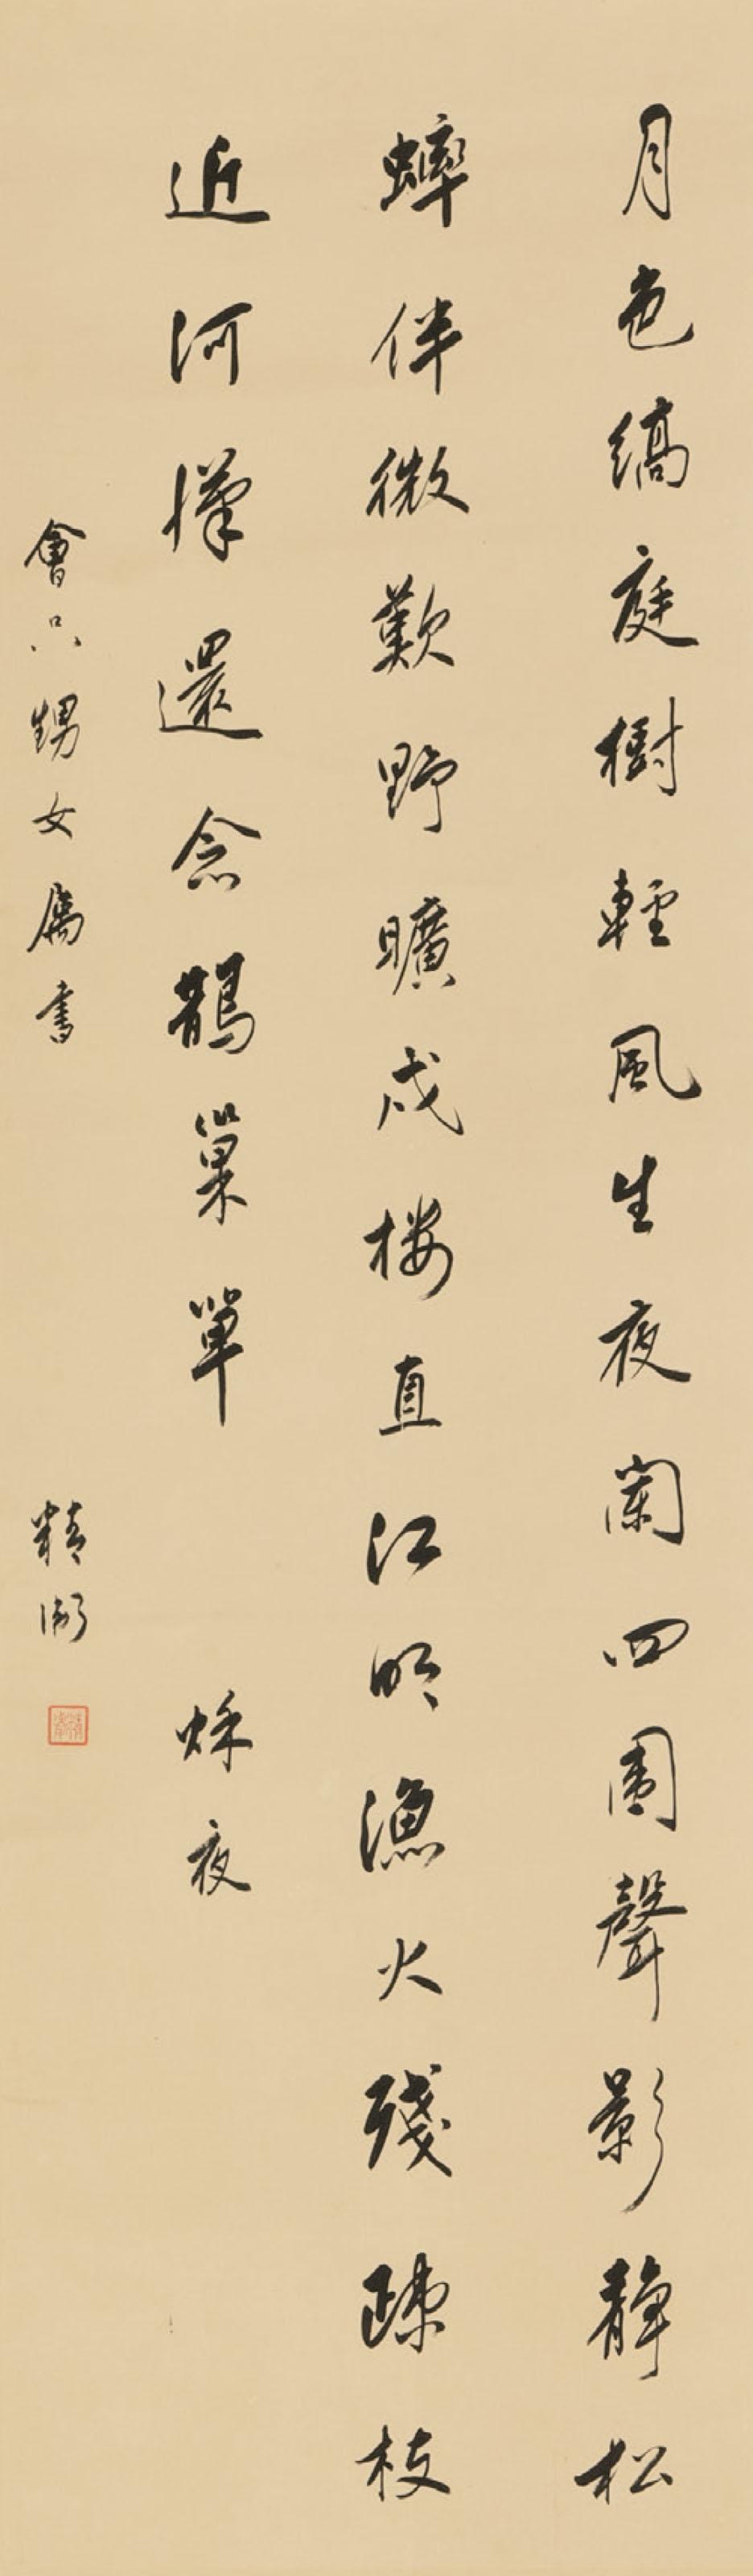 月色縞庭樹輕風生夜闌四圍聲影靜松
蟀伴微歎野曠戍樓直江明漁火殘疎枝
近河漢還念鵲巢單 秌夜
會只甥女屬書 精衛